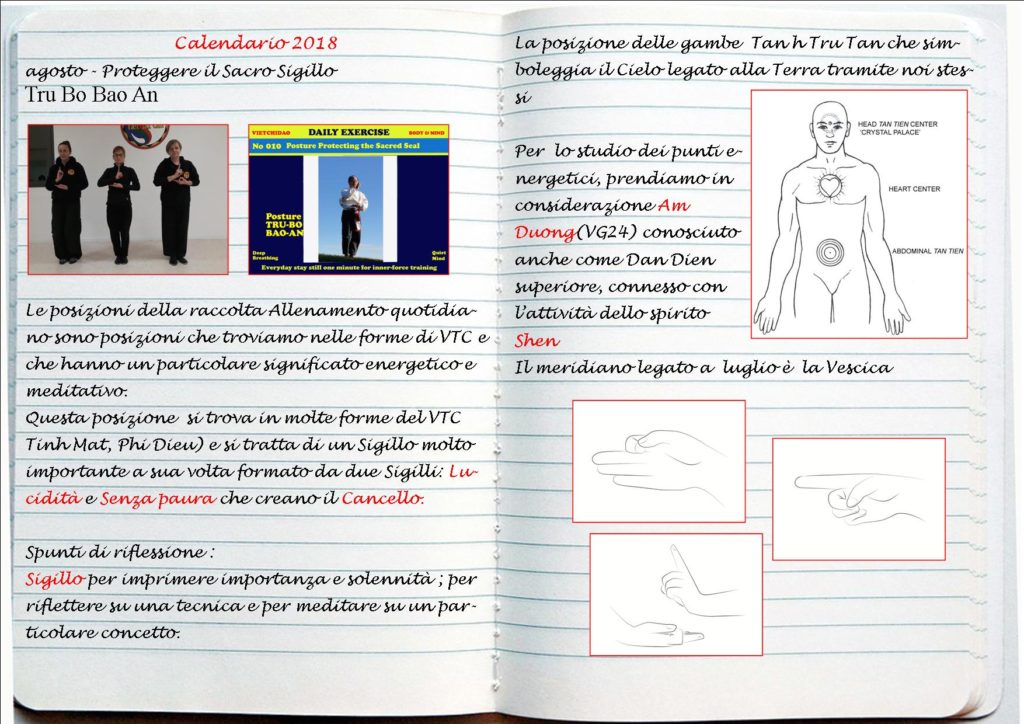 Calendario 2018
agosto - Proteggere il Sacro Sigillo
Tru Bo Bao An
VIETCHIDAO DAILY EXERCISE BODY & MIND
No 010 Posture Protecting the Sacred Seal
Posture
TRU-BO
BAO-AN
Deep
Breathing
Quiet
Mind
Everyday stay still one minute for inner-force training
Le posizioni della raccolta Allenamento quotidia-
no sono posizioni che troviamo nelle forme di VTC e
che hanno un particolare significato energetico e
meditativo.
Questa posizione si trova in molte forme del VTC
Tinh Mat, Phi Dieu) e si tratta di un Sigillo molto
importante a sua volta formato da due Sigilli: Lu-
cidità e Senza paura che creano il Cancello.
Spunti di riflessione :
Sigillo per imprimere importanza e solennità ; per
riflettere su una tecnica e per meditare su un par-
ticolare concetto.
La posizione delle gambe Tan h Tru Tan che sim-
boleggia il Cielo legato alla Terra tramite noi stes-
si
Per lo studio dei punti e-
nergetici, prendiamo in
considerazione Am
Duong(VG24) conosciuto
anche come Dan Dien
superiore, connesso con
l'attività dello spirito
Shen
Il meridiano legato a luglio è la Vescica
HEAD TAN TIEN CENTER
'CRYSTAL PALACE'
HEART CENTER
ABDOMINAL TAN TIEN